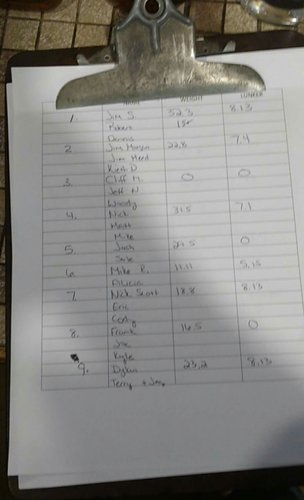 WEIGHT LUNKER
1. Jim S. 32.3 8.13
Robert 1st
Dennis
2 Jim Morgan 22.8 7.4
Jim Heed
3. Cliff M. 0 0
Jeff N.
Woody
4. Nick 31.5 7.1
Matt
Mike
5. Josh 24.5 0
6. Mike R. 11.11 5.15
Alicia
7. Nick Scott 18.8 8.13
Eric
Cody
8. Frank 16.5 0
Joe
Kyle
9. Dylan 23.2 8.13
Terry + Jay